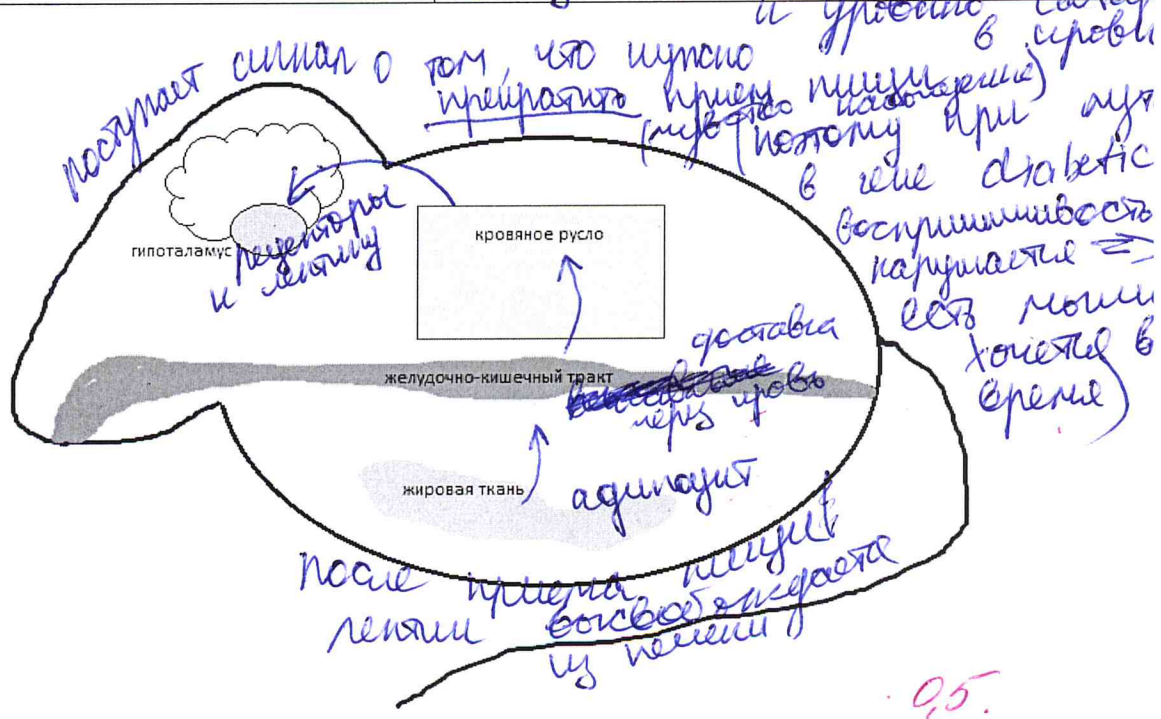 и уровню
в крови
поступает сигнал о том, что нужно
прекратить прием пищи
(чувство насыщения)
(поэтому при мут
в гене diabetic
восприимчивость
нарушается =>
есть мыши
хочется в
время)
гипоталамус
рецепторы
к лептину
кровяное русло
доставка
через кровь
желудочно-кишечный тракт
жировая ткань
адипоцит
После приема пищи
лептин высвобождается
из печени
0,5.